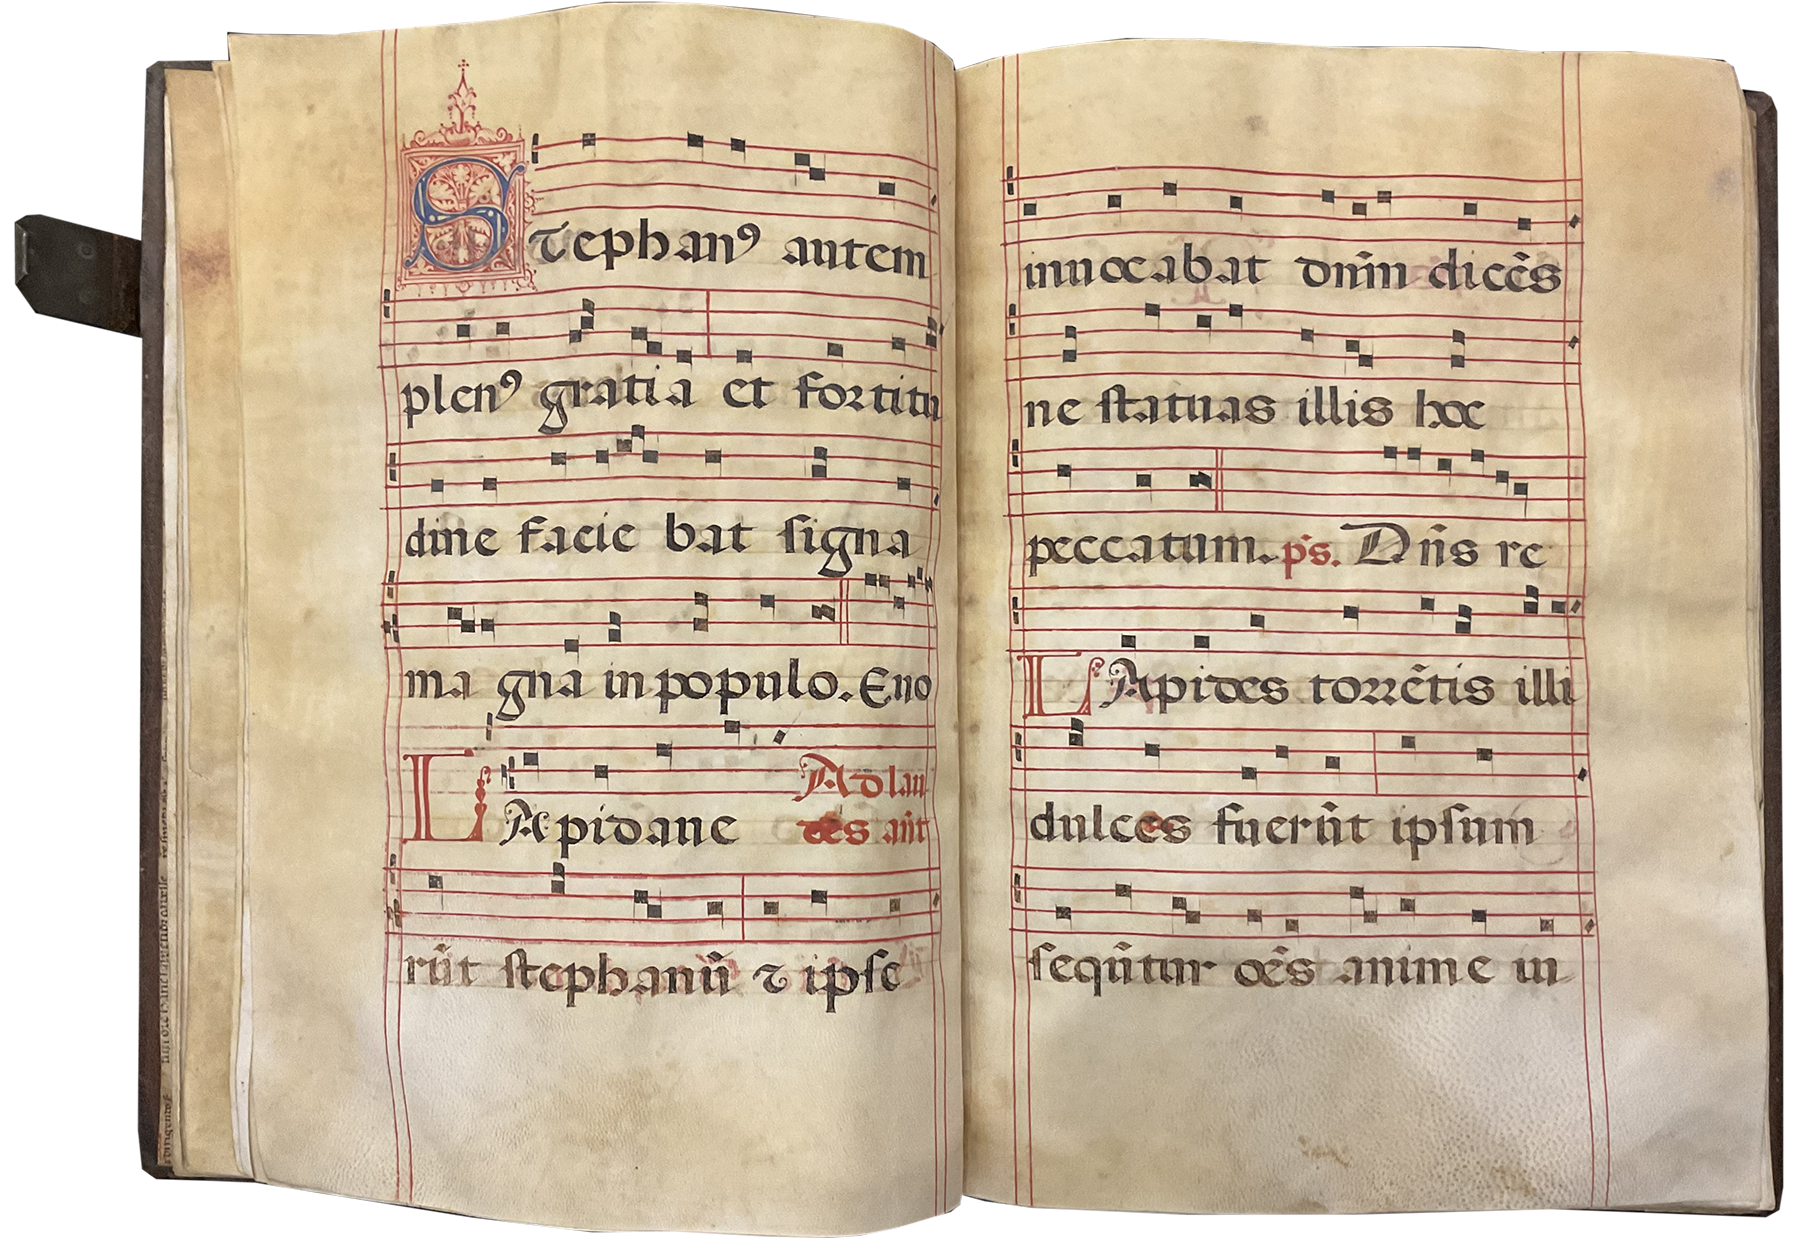 Stephanꝰ autem
plenꝰ gratia et fortitu
dine facie bat signa
ma gna in populo. Euo
Ad lau
Lapidaue des aut̃
rũt stephanũ ⁊ ipse
inuocabat dñm dicẽs
ne statuas illis hoc
peccatum. p̃s. Dñs re
Lapides torrẽtis illi
dulces fuerũt ipsum
sequũtur oẽs anime iu